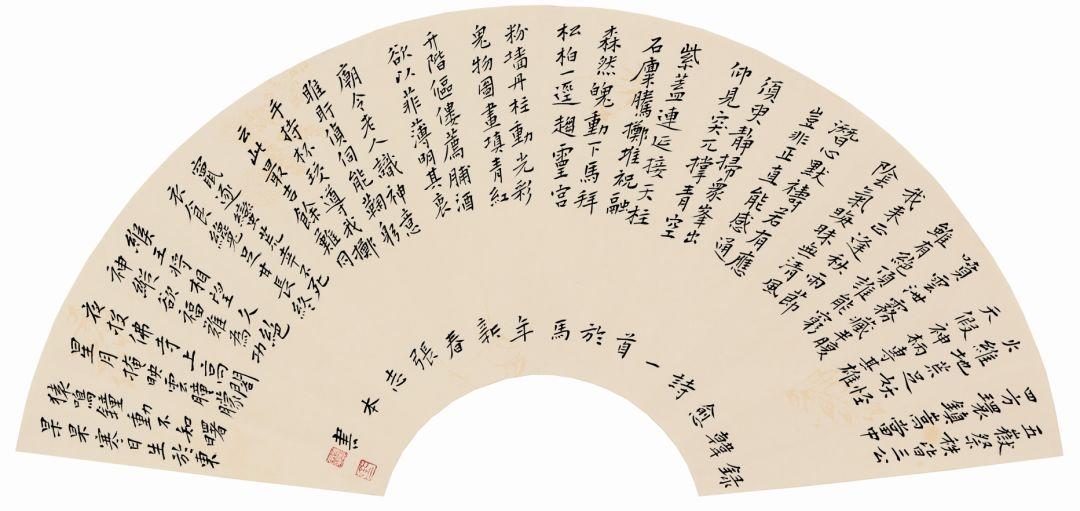 五嶽祭秩皆三公
四方環鎮嵩當中
火維地荒足妖怪
天假神柄專其雄
噴雲泄霧藏半腹
雖有絕頂誰能窮
我来正逢秋雨節
陰氣晦昧無清風
潛心默禱若有應
豈非正直能感通
須臾靜掃衆峯出
仰見突兀撐青空
紫蓋連延接天柱
石廩騰擲堆祝融
森然魄動下馬拜
松柏一逕趨靈宮
粉墻丹柱動光彩
鬼物圖畫填青紅
升階傴僂薦脯酒
欲以菲薄明其衷
廟令老人識神意
睢盱偵伺能鞠躬
手持杯珓導我擲
云此最吉餘難同
竄逐蠻荒幸不死
衣食纔足甘長終
侯王將相望久絕
神縱欲福難為功
夜投佛寺上高閣
星月掩映雲曈曨
猿鳴鐘動不知曙
杲杲寒日生於東
錄韓愈詩一首於馬年新春張志本書